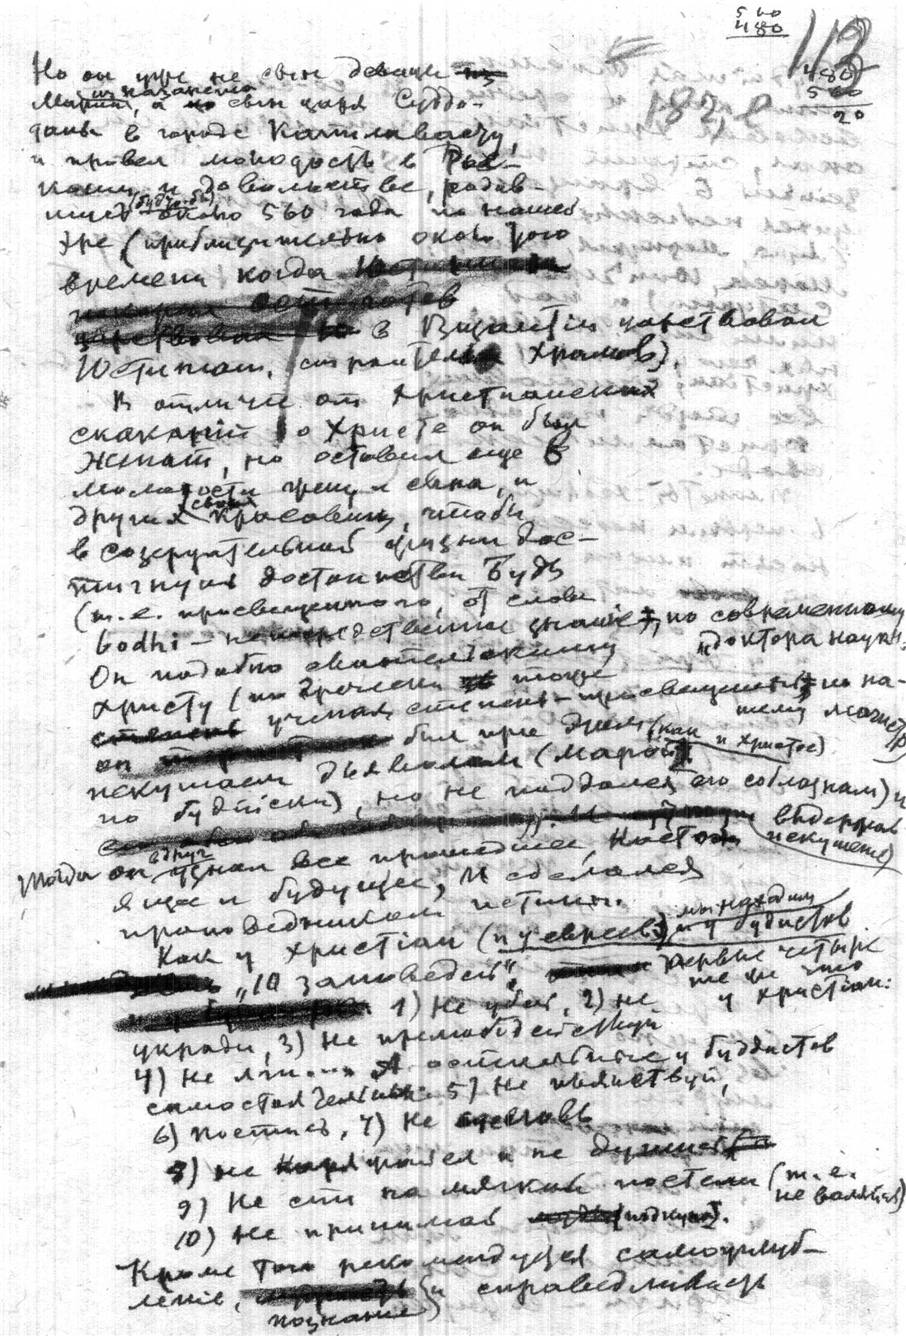 560
480
113
480
560
20
182, e
Но он уже не сын девицы
Марии из Назарета, а сын царя Суддо-
даны в городе Капилавасту,
и провел молодость в Рос-
коши и довольстве, родив-
шись (будто-бы) около 560 года по нашей
эре (приблизительно около того
времени когда
в Византии царствовал
Юстиниан, строитель храмов).
В отличие от Христианских
сказаний о Христе он был
женат, но оставил еще в
молодости жену и сына, и
других своих красавиц, чтобы
в созерцательной жизни дос-
тигнуть достоинства Будды
(т.е. просвещенного, от слова
bodhi – непосредственное знание, по современному
"доктора наук".
Он подобно евангельскому
Христу (по Гречески тоже
ученая степень – просвещенный, по на-
шему магистр)
он был при этом (как и Христос)
искушаем дьяволом (Марой
по будийски), но не поддался его соблазнам) и
выдержав
искушение)
Тогда он вдруг узнал все прошедшее, насто-
ящее и будущее, и сделался
проповедником истины.
Как у Христиан (и у евреев) мы находим
и у будистов
"10 заповедей", первые четыре
те же что
у христиан:
1) Не убей, 2) не
укради, 3) Не прелюбодействуй
4) Не лги. А остальные у буддистов
самостоятельны: 5) Не пьянствуй,
6) постись, 7) Не
8) не и не душись
9) Не спи на мягкой постели (т.е.
не валяйся)
10) Не принимай
Кроме того рекомендуется самоуглуб-
ление, познание и справедливость